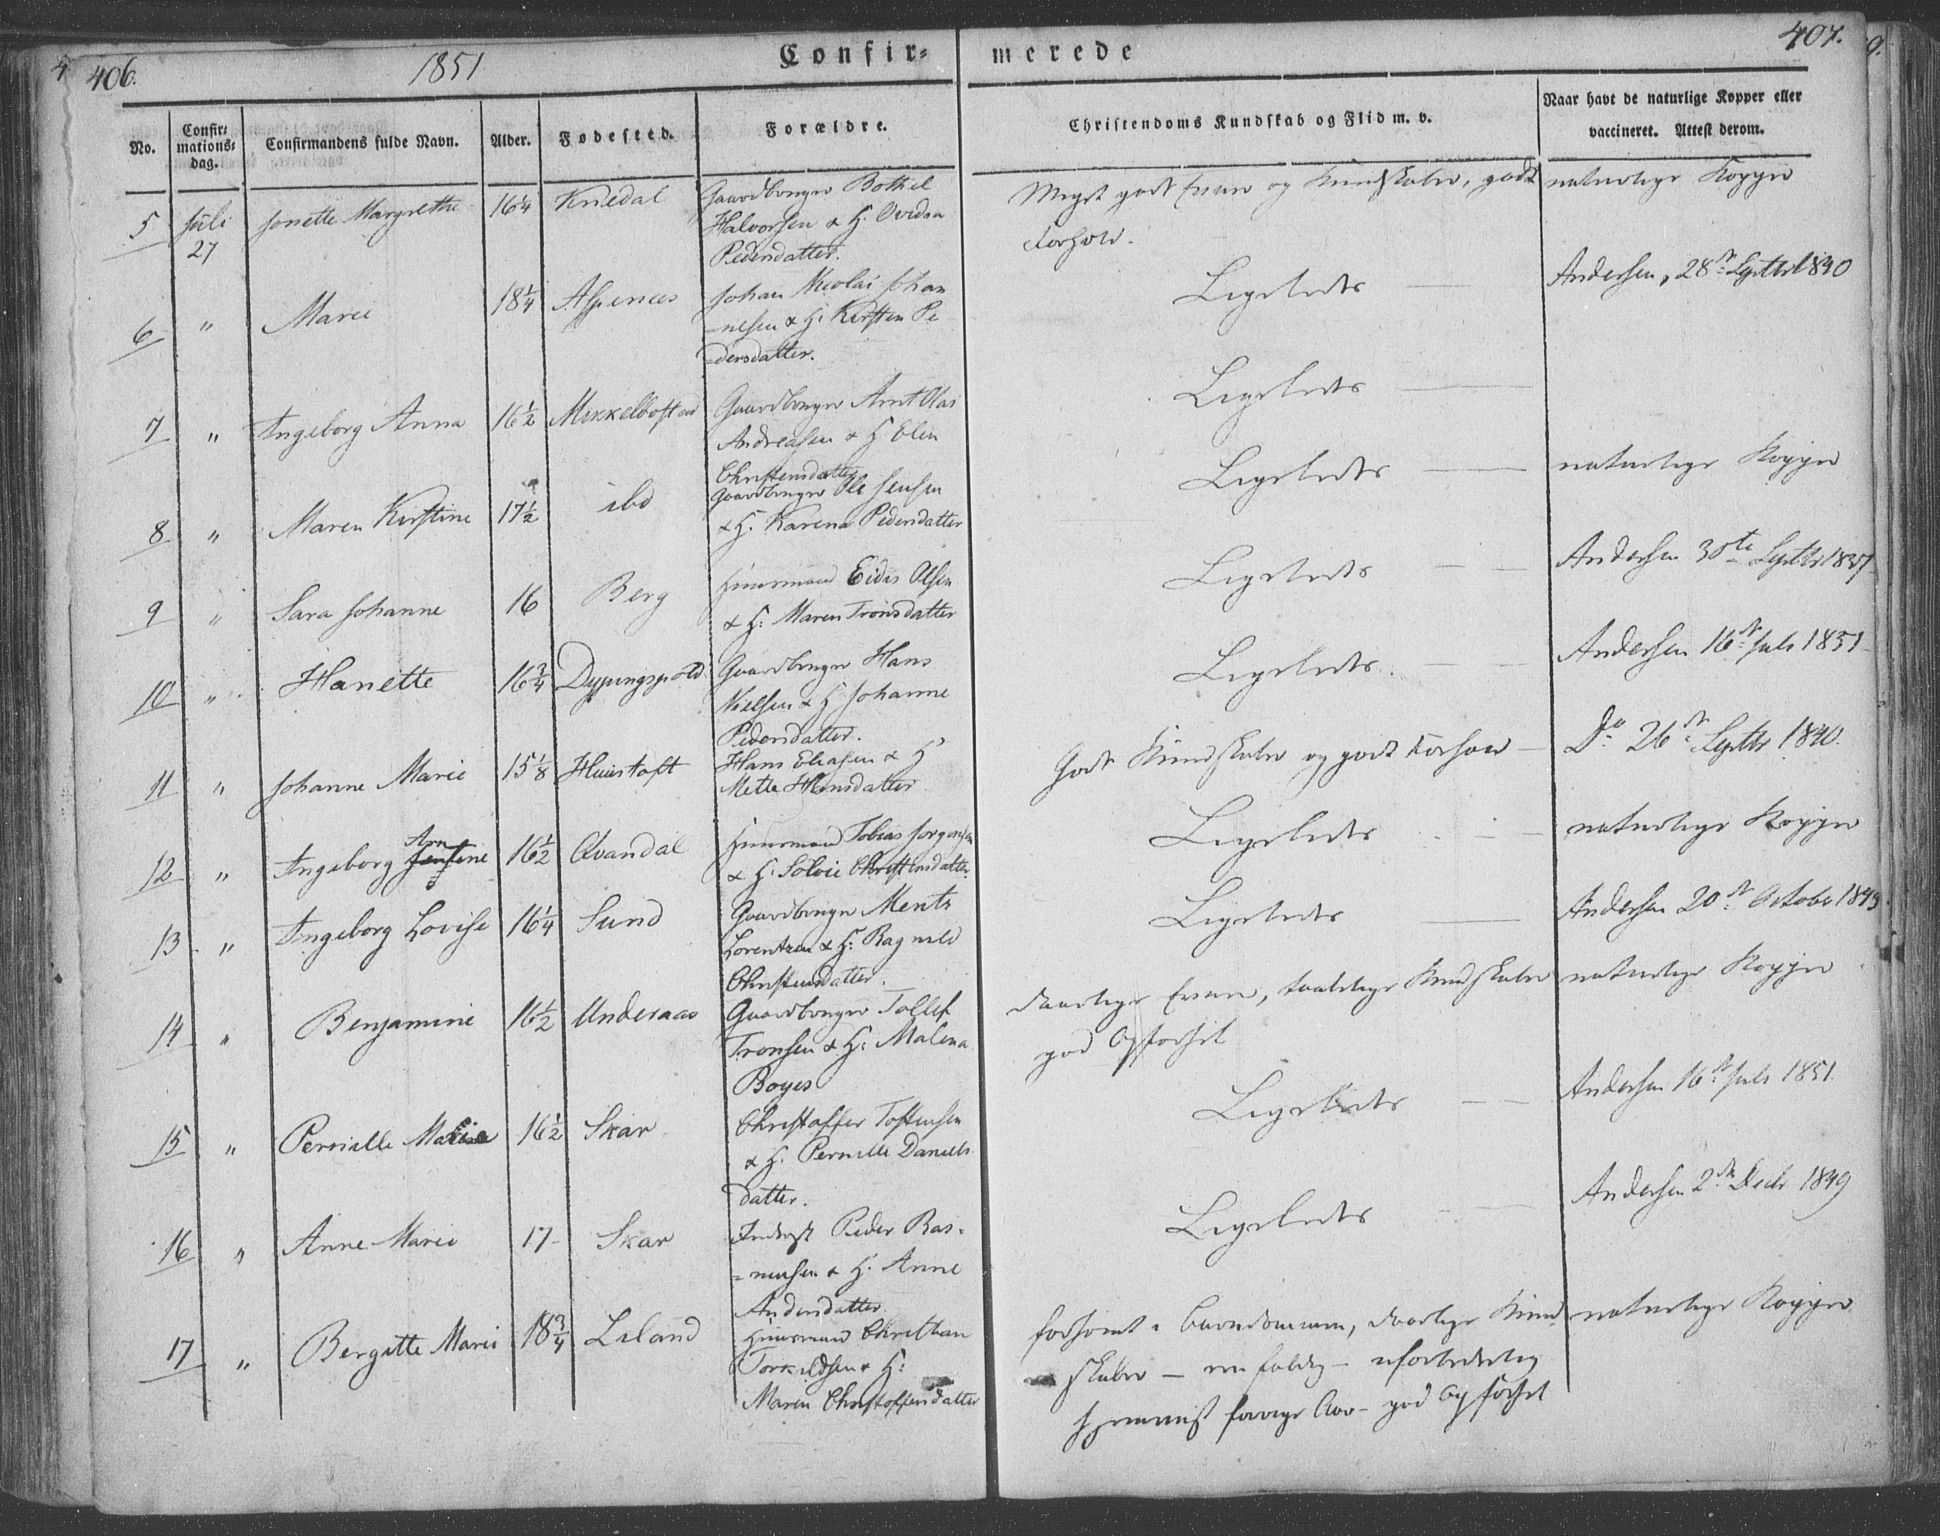 406.
1851
Confir=
merede
407.
No.
Confir=
mations=
dag.
Confirmandens fulde Navn.
Alder.
Fødested.
Forældre.
Christendoms Kundskab og Flid m. v.
Naar havt de naturlige Kopper eller
vaccineret. Attest derom.
5
Juli
27
Jonette Margrethe
16 1/4
Gaardbruger Bothel
Halvorsen & H.
Pedersdatter.
Meget god Evne og Kundskaber, godt
Forhold.
naturlige Kopper
6
"
Marie
18 1/4
Johan Nicolai Johan
-nesen & H. Kirsten Pe
-dersdatter.
Ligeledes
Andersen, 28de Septbr 1840
7
"
Ingeborg Anna
16 1/2
Mikkelbostad
Gaardbruger Arnt Olai
Andreasen & H. Elen
Christensdatter
Ligeledes
8
"
Maren Kirstine
17 1/2
ibd
Gaardbruger Ole Jensen
& H. Karena Pedersdatter
Ligeledes
naturlige Kopper
9
"
Sara Johanne
16
Berg
Huusmand Eidis Olsen
& H: Maren Tronsdatter
Ligeledes
Andersen 30te Septbr 1837
10
"
Hanette
16 3/4
Gaardbruger Hans
Nielsen & H Johanne
Pedersdatter.
Ligeledes.
Andersen 16de Juli 1851
11
"
Johanne Marie
15 1/8
Hans Eliasen & H
Mette Hansdatter
Godt Kundskaber og godt Forhold
Do 26de Septbr 1840.
12
"
Ingeborg Arn
16 1/2
Qvandal
Huusmand Tobias Jørgensen
& H: Solvie Christensdatter
Ligeledes
naturlige Kopper
13
"
Ingeborg Lovise
16 1/4
Sund
Gaardbruger Mentz
Lorentzen & H: Ragnild
Christensdatter.
Ligeledes
Andersen 20de October 1843
14
"
Benjamine
16 1/2
Underaas
Gaardbruger Tollef
Tronsen & H: Malena
Boyes
daarlige Evner, taalelige Kundskaber
god Opførsel
naturlige Kopper
15
"
Pernille
16 1/2
Skar
Christoffer Tostensen
& H. Pernille Daniels
datter.
Ligeledes
Andersen 16de Juli 1851.
16
"
Anne Marie
17
Skar
Inderst Peder Ras-
=musen & H. Anne
Andersdatter
Ligeledes
Andersen 2den Decbr 1849
17
"
Bergitte Marie
18 3/4
Liland
Huusmand Christian
Torkildsen & H:
Maren Christoffersdatter
forsømt i Barndommen, daarlige Kund
skaber - eenfoldig -
forrige Aar - god Opførsel
naturlige Kopper